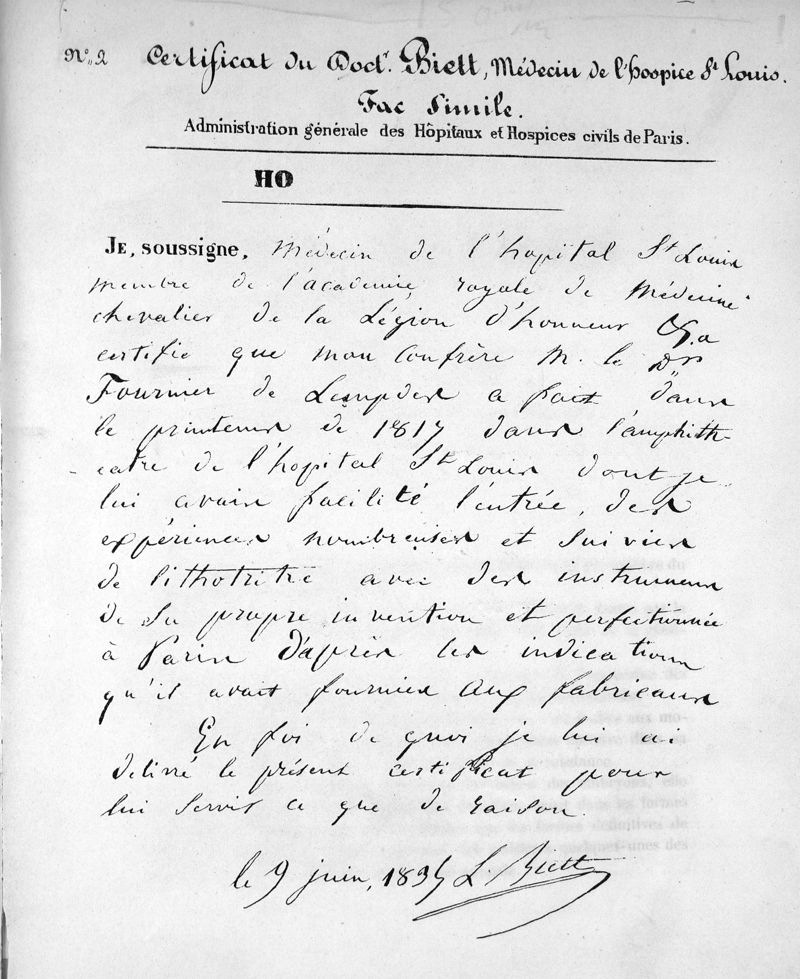 N°. 2 Certificat du Doct.r Biett, Médecin de l'hospice St Louis.
Fac Simile.
Administration générale des Hôpitaux et Hospices civils de Paris.
HO
JE, soussigne, Médecin de l'hopital St Louis
membre de l'académie royale de Médecine
chevalier de la Légion d'honneur &a
certifie que mon confrère M. le Dr
Fournier de Lempdes a fait dans
le printems de 1817 dans l'amphith-
eatre de l'hopital St Louis dont je
lui avais facilité l'entrée, des
expériences nombreuses et suivies
de lithotritie avec des instrumens
de sa propre invention et perfectionnée
à Paris d'après les indications
qu'il avait fournies aux fabricans
En foi de quoi je lui ai
delivré le présent certificat pour
lui servir ce que de raison.
le 9 juin, 1835 L. Biett